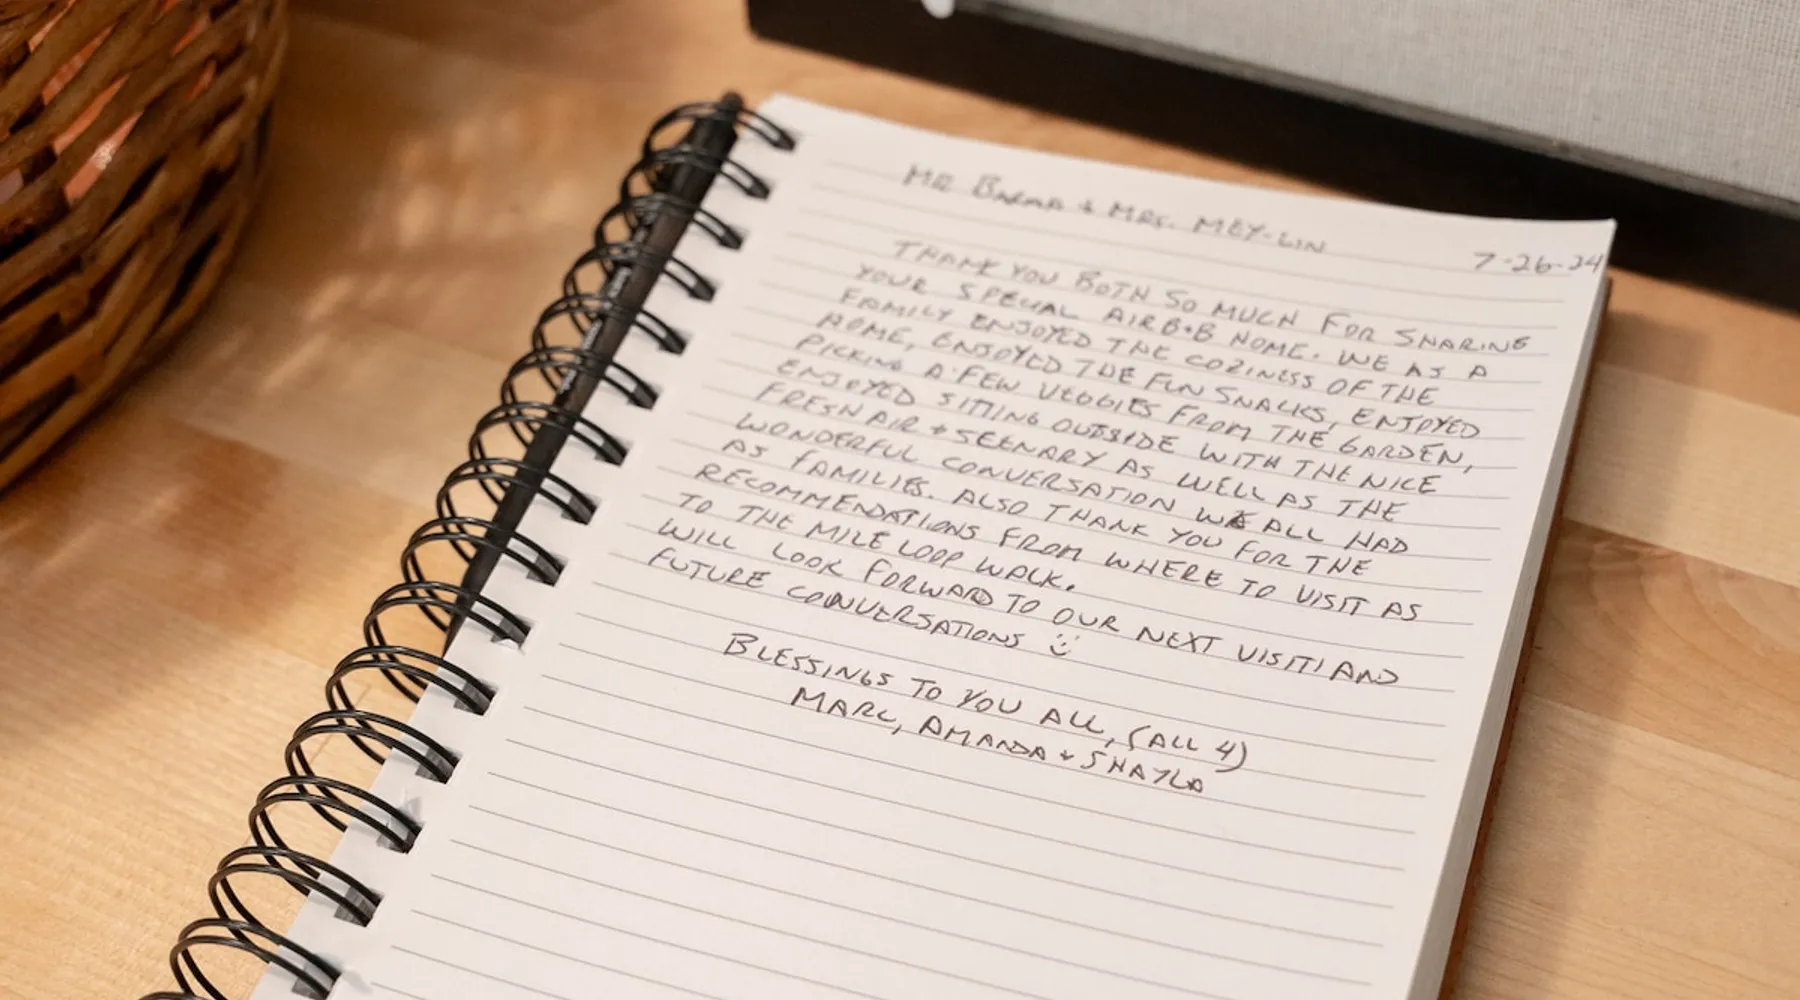 MR BARMA + MRS. MEY-LIN
7-26-24
THANK YOU BOTH SO MUCH FOR SHARING
YOUR SPECIAL AIRB+B HOME. WE AS A
FAMILY ENJOYED THE COZINESS OF THE
HOME, ENJOYED THE FUN SNACKS, ENJOYED
PICKING A FEW VEGGIES FROM THE GARDEN,
ENJOYED SITTING OUTSIDE WITH THE NICE
FRESH AIR + SEENARY AS WELL AS THE
WONDERFUL CONVERSATION WE ALL HAD
AS FAMILIES. ALSO THANK YOU FOR THE
RECOMMENDATIONS FROM WHERE TO VISIT AS
TO THE MILE LOOP WALK.
WILL LOOK FORWARD TO OUR NEXT VISIT! AND
FUTURE CONVERSATIONS :)
BLESSINGS TO YOU ALL, (ALL 4)
MARC, AMANDA + SHAYLA